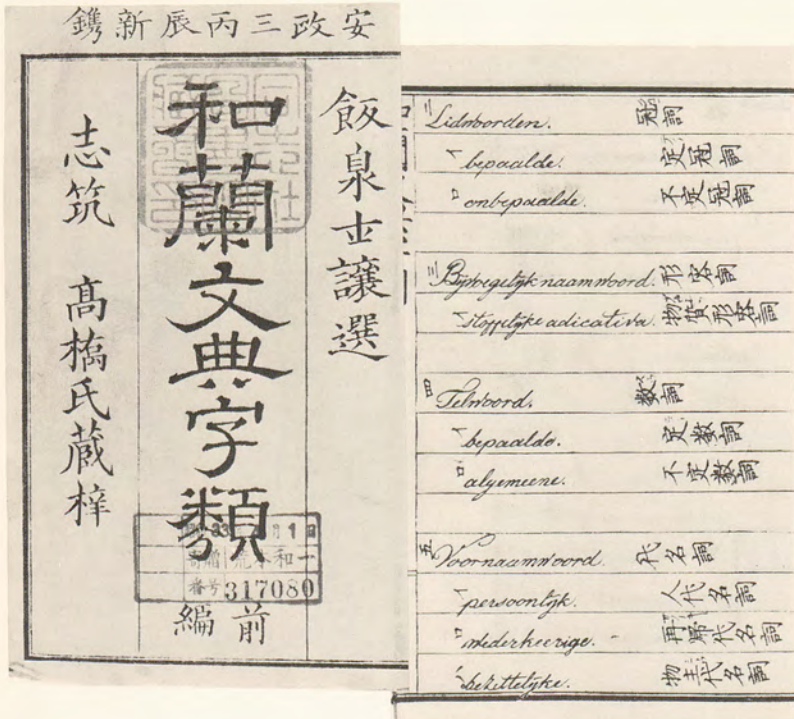 安政三丙辰新鐫
飯泉士讓選
和蘭文典字類
前編
志筑 髙橋氏蔵梓
1
317080
番号
二 Lidwoorden. 冠詞
イ bepaalde. 定冠詞
ロ onbepaalde. 不定冠詞
三 Bijvoegelijk naamwoord. 形容詞
イ stoffelijke adicativa. 物質形容詞
四 Telwoord. 数詞
イ bepaalde. 定数詞
ロ algemeene. 不定数詞
五 Voornaamwoord. 代名詞
イ persoonlijk. 人代名詞
ロ wederkeerige. 再帰代名詞
ハ bezittelijke. 物主代名詞